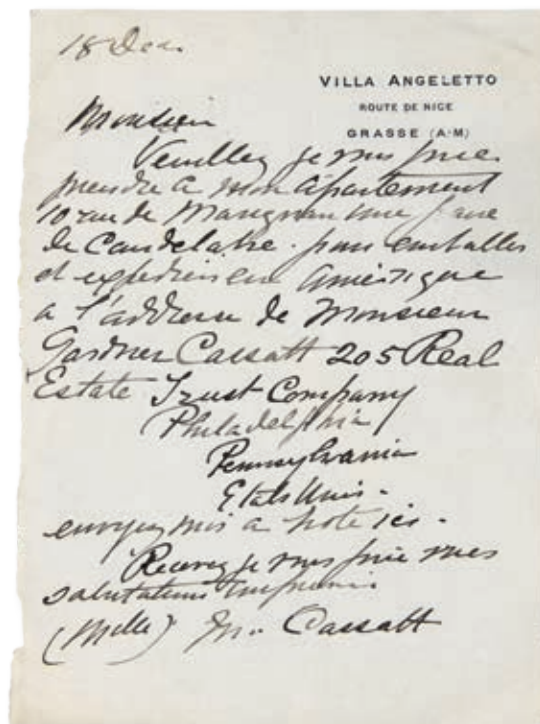 18 Dec.
VILLA ANGELETTO
ROUTE DE NICE
GRASSE (A-M)
Monsieur
Veuillez je vous prie
prendre a mon apartement
10 rue de Marignan une paire
de Candelabre. pour emballer
et expedier en Amérique
a l'addresse de Monsieur
Gardner Cassatt 205 Real
Estate Trust Company
Philadelphia
Pennsylvania
Etats Unis.
envoyez moi a note ici.
Recevez je vous prie mes
salutations
(Melle) M. Cassatt